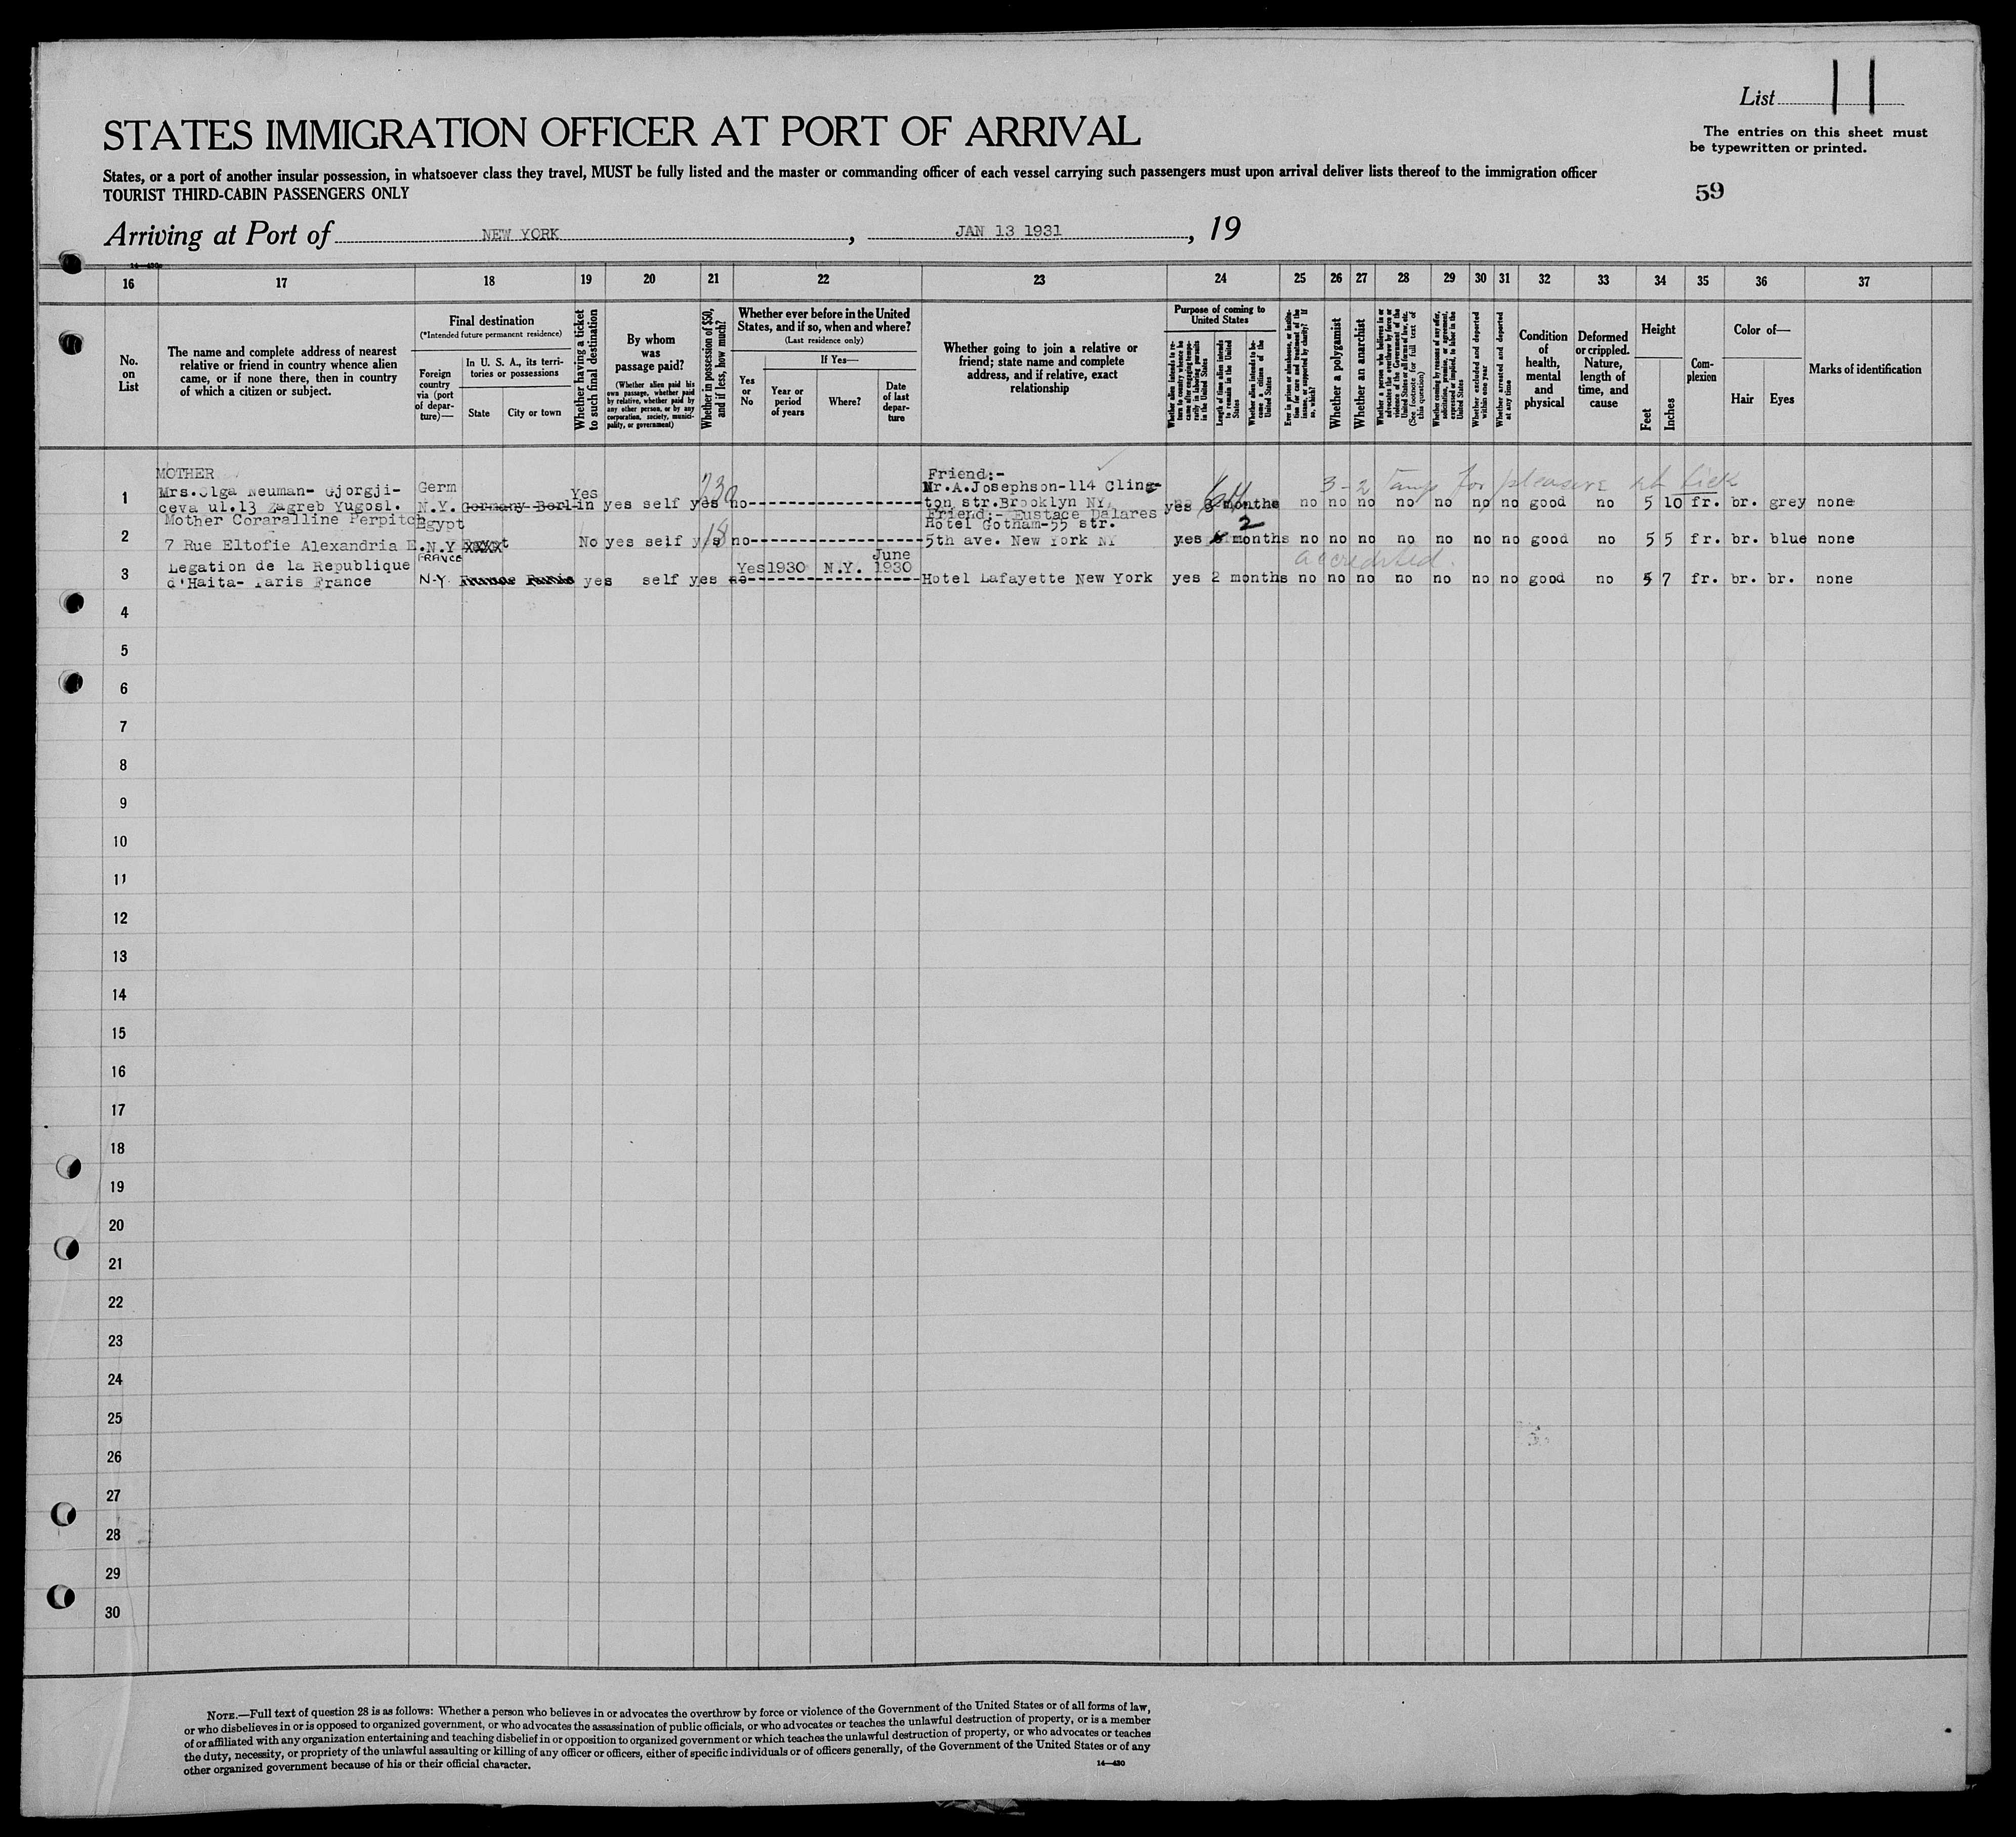 List 11
The entries on this sheet must
be typewritten or printed.
STATES IMMIGRATION OFFICER AT PORT OF ARRIVAL
States, or a port of another insular possession, in whatsoever class they travel, MUST be fully listed and the master or commanding officer of each vessel carrying such passengers must upon arrival deliver lists thereof to the immigration officer
TOURIST THIRD-CABIN PASSENGERS ONLY
59
Arriving at Port of NEW YORK, JAN 13 1931, 19
14—430
16 17 18 19 20 21 22 23 24 25 26 27 28 29 30 31 32 33 34 35 36 37
No. on List
The name and complete address of nearest relative or friend in country whence alien came, or if none there, then in country of which a citizen or subject.
Final destination
(*Intended future permanent residence)
Foreign country via (port of departure)—
In U. S. A., its territories or possessions
State
City or town
Whether having a ticket to such final destination
By whom was passage paid?
(Whether alien paid his own passage, whether paid by relative, whether paid by any other person, or by any corporation, society, municipality, or government)
Whether in possession of $50, and if less, how much?
Whether ever before in the United States, and if so, when and where?
(Last residence only)
Yes or No
If Yes—
Year or period of years
Where?
Date of last departure
Whether going to join a relative or friend; state name and complete address, and if relative, exact relationship
Purpose of coming to United States
Whether alien intends to return to country whence he came after engaging temporarily in laboring pursuits in the United States
Length of time alien intends to remain in the United States
Whether alien intends to become a citizen of the United States
Ever in prison or almshouse, or institution for care and treatment of the insane, or supported by charity? If so, which?
Whether a polygamist
Whether an anarchist
Whether a person who believes in or advocates the overthrow by force or violence of the Government of the United States or all forms of law, etc. (See footnote for full text of this question)
Whether coming by reasons of any offer, solicitation, promise, or agreement, expressed or implied, to labor in the United States
Whether excluded and deported within one year
Whether arrested and deported at any time
Condition of health, mental and physical
Deformed or crippled. Nature, length of time, and cause
Height
Feet
Inches
Complexion
Color of—
Hair
Eyes
Marks of identification
MOTHER Friend:-
Mrs.Olga Neuman- Gjorgji- Germ Yes Mr.A.Josephson-114 Cling-
1 ceva ul.13 Zagreb Yugosl. N.Y. Germany Berlin yes self yes no ton str.Brooklyn NY, yes months no no no no no no no good no 5 10 fr. br. grey none
3-2 for pleasure
Mother Coraralline Perpitch Egypt Friend:- Eustace Dalares
Hotel Gotham-55 str. 2
2 7 Rue Eltofie Alexandria E. N.Y No yes self yes 18 no 5th ave. New York NY yes months no no no no no no no good no 5 5 fr. br. blue none
accredited.
Legation de la Republique FRANCE Yes 1930 N.Y. June 1930
3 d'Haita- Paris France N.Y. France Paris yes self yes no Hotel Lafayette New York yes 2 months no no no no no no no good no 5 7 fr. br. br. none
4
5
6
7
8
9
10
11
12
13
14
15
16
17
18
19
20
21
22
23
24
25
26
27
28
29
30
NOTE.—Full text of question 28 is as follows: Whether a person who believes in or advocates the overthrow by force or violence of the Government of the United States or of all forms of law,
or who disbelieves in or is opposed to organized government, or who advocates the assassination of public officials, or who advocates or teaches the unlawful destruction of property, or is a member
of or affiliated with any organization entertaining and teaching disbelief in or opposition to organized government or which teaches the unlawful destruction of property, or who advocates or teaches
the duty, necessity, or propriety of the unlawful assaulting or killing of any officer or officers, either of specific individuals or of officers generally, of the Government of the United States or of any
other organized government because of his or their official character.
14—430